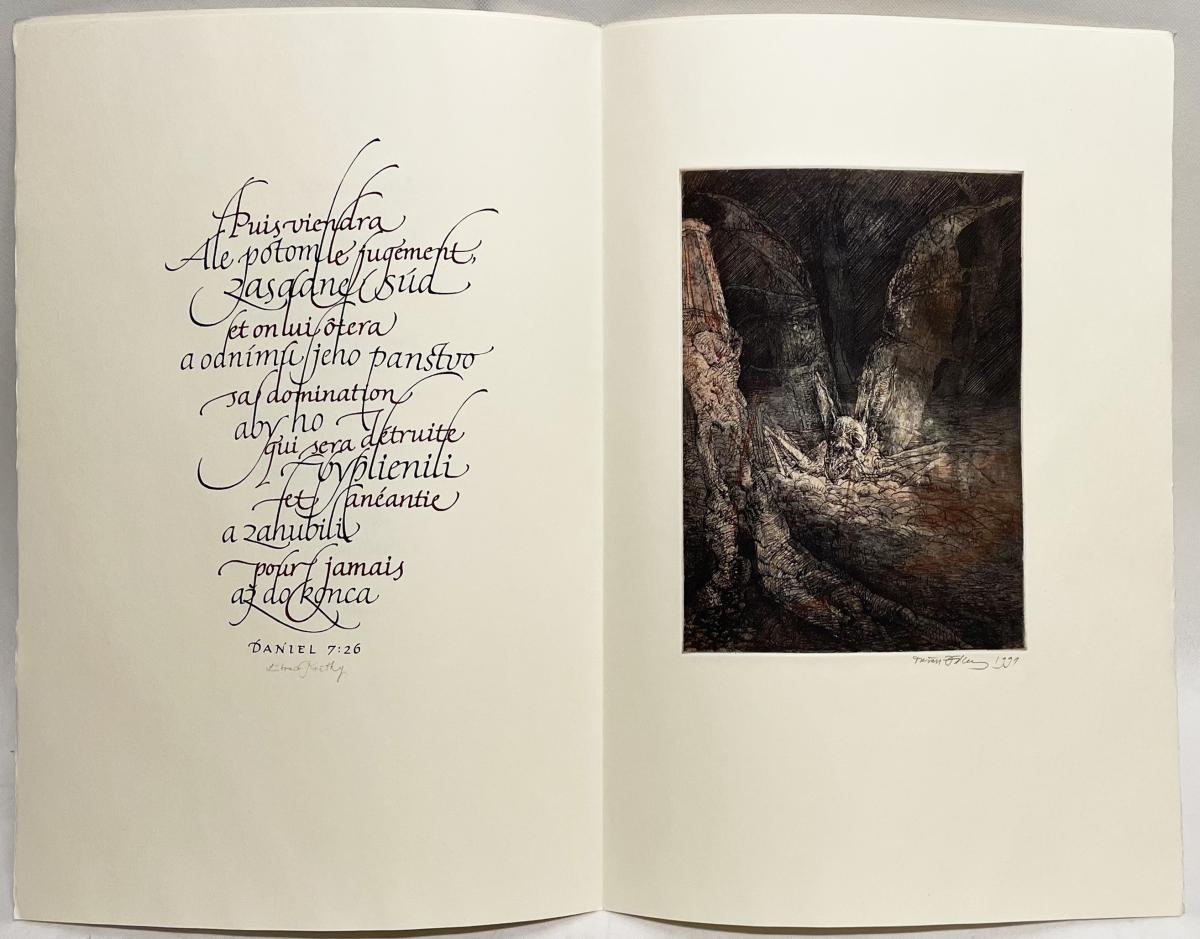 Puis viendra
Ale potom le jugement,
zasadne súd
et on lui ôtera
a odnímu jeho panstvo
sa domination
aby ho
qui sera détruite
vyplienili
et anéantie
a zahubili
pour jamais
až do konca
DANIEL 7:26
1991